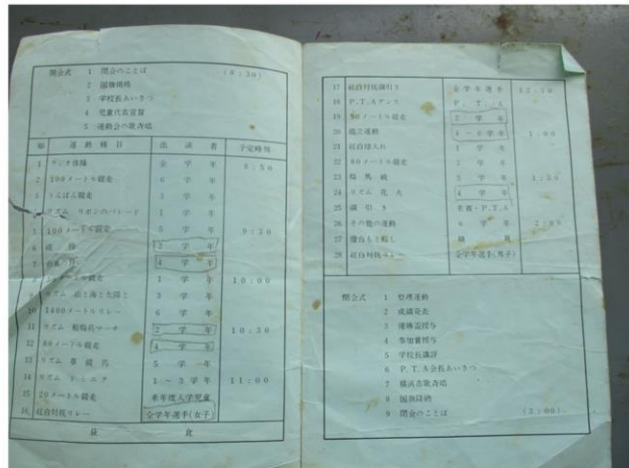 開会式 1 開会のことば (8:30)
2 国旗掲揚
3 学校長あいさつ
4 児童代表宣誓
5 運動会の歌斉唱
運動種目 出演者 予定時刻
1 ラジオ体操 全学年 8:50
2 100メートル競走 6学年
3 りんぱん競走 3学年
リズム リボンのパレード 1学年
5 100メートル競走 5学年 9:30
6 2学年
7 4学年
8 メートル競走 1学年 10:00
9 リズム 3学年
10 1400メートルリレー 6学年
11 リズム マーチ 2学年 10:30
12 80メートル競走 4学年
13 リズム 5学年
14 リズム 1~3学年 11:00
15 20メートル競走 来年度入学児童
16 紅白対抗リレー 全学年選手(女子)
昼食
17 紅白対抗綱引き 全学年選手 12:10
18 P.T.Aダンス P.T.A
19 80メートル競走 2学年
20 組立運動 4~6学年 1:00
21 紅白球入れ 1学年
22 80メートル競走 3学年
23 騎馬戦 5学年 1:30
24 リズム 花火 4学年
25 綱引き 来賓・P.T.A
26 その他の運動 6学年 2:00
27
28 紅白対抗リレー 全学年選手(男子)
閉会式 1 整理運動
2 成績発表
3 優勝盃授与
4 参加賞授与
5 学校長講評
6 P.T.A会長あいさつ
7 横浜市歌斉唱
8 国旗降納
9 閉会のことば (3:00)